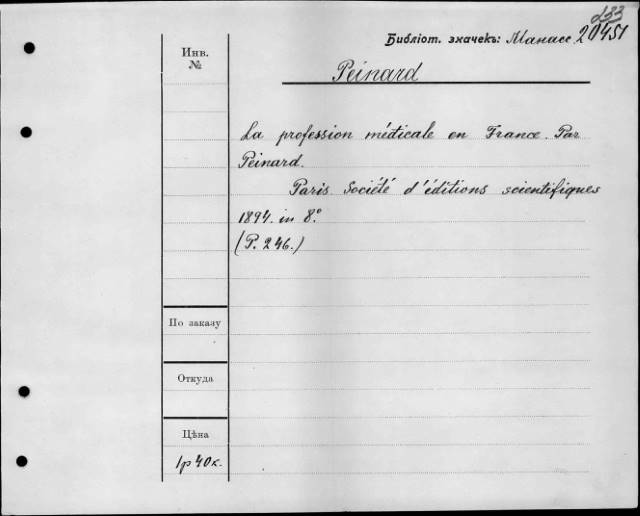 233
Библіот. значекъ: Манасс. 20451
Инв.
№
Peinard
La profession médicale en France. Par
Peinard.
Paris Société d'éditions scientifiques
1894. in 8.°
(P. 246.)
По заказу
Откуда
Цѣна
1р 40к.